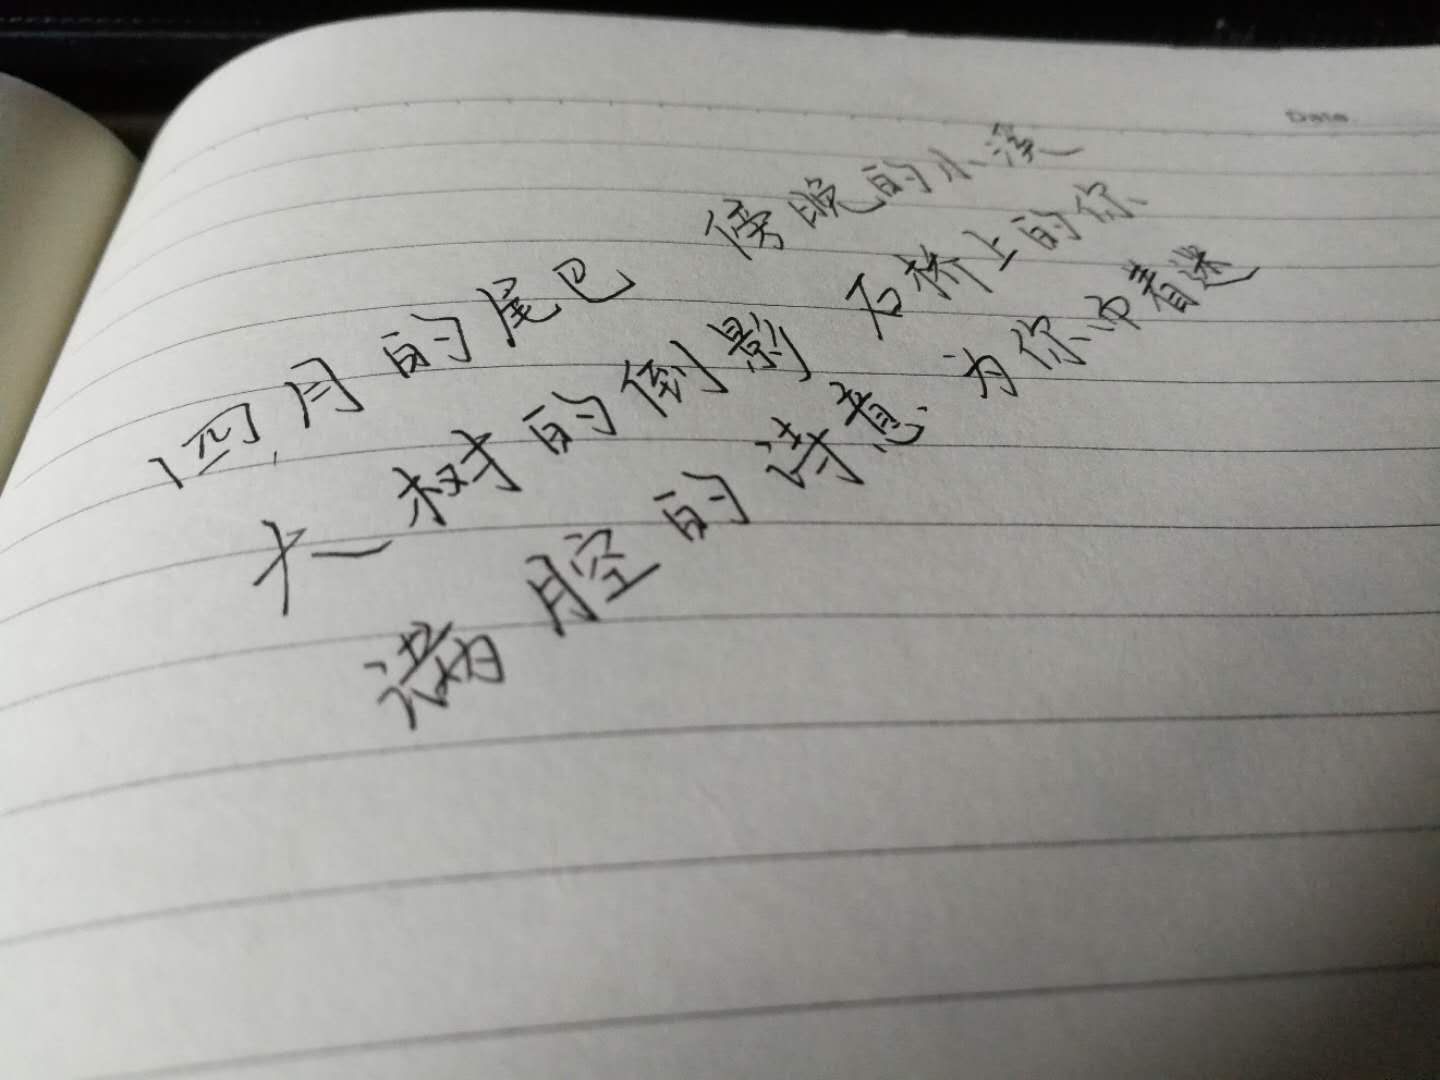 Date
四月的尾巴 傍晚的小溪
十一树的倒影 石桥上的你
满腔的诗意 为你而着迷